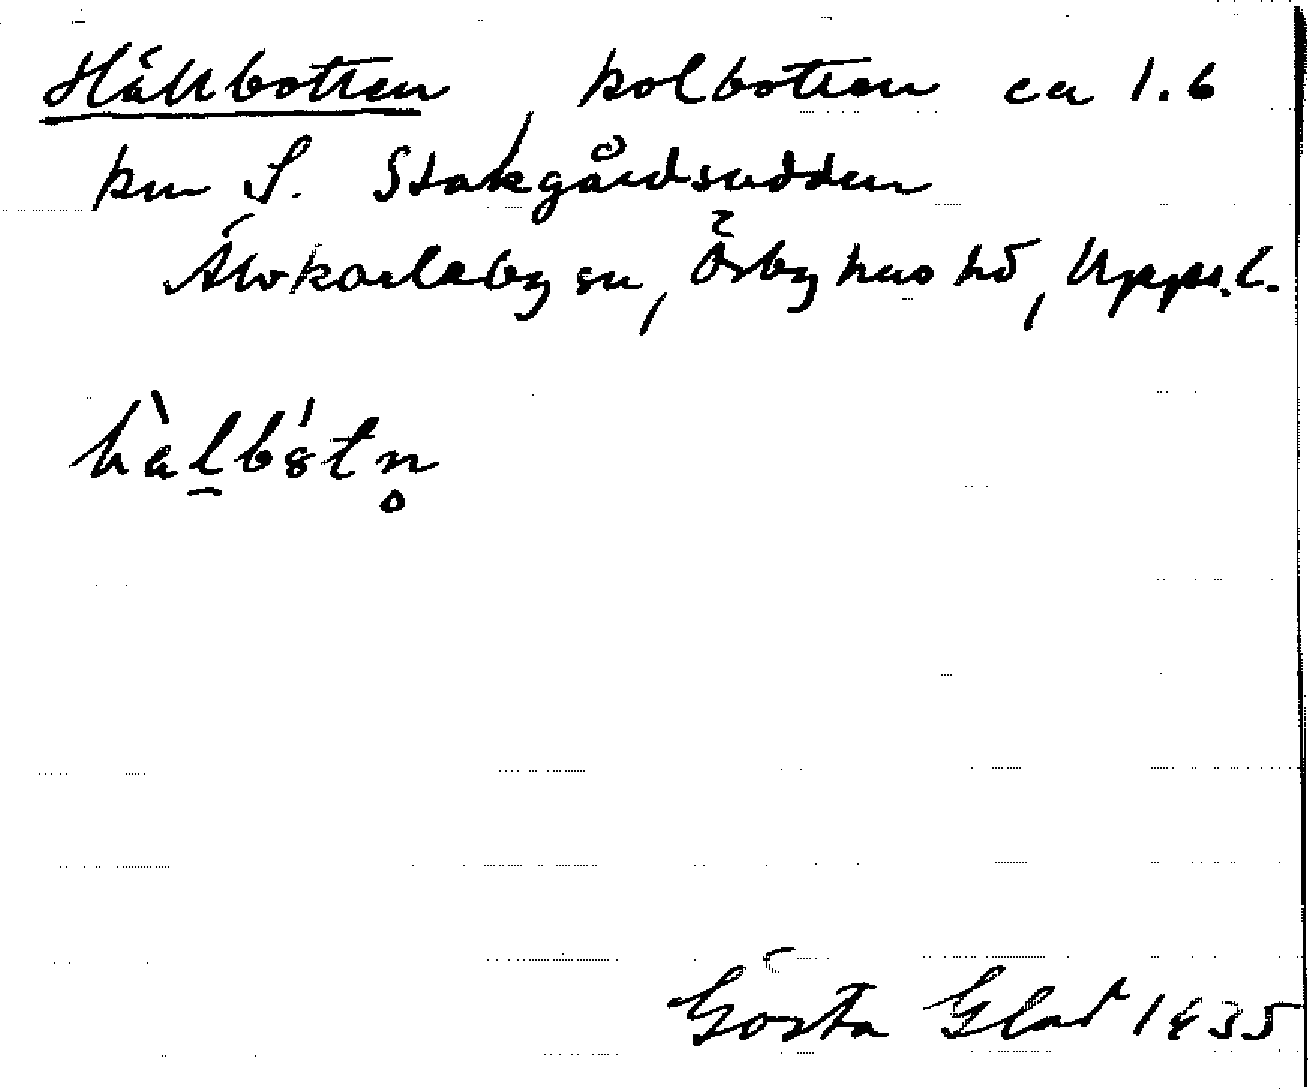 Hällbotten, kolbotten ca 1.6
km S. Stakgårdsudden
Älvkarleby sn, Örbyhus hd, Upps.l.
hàlbȣ́tn̥
Gösta Glad 1935